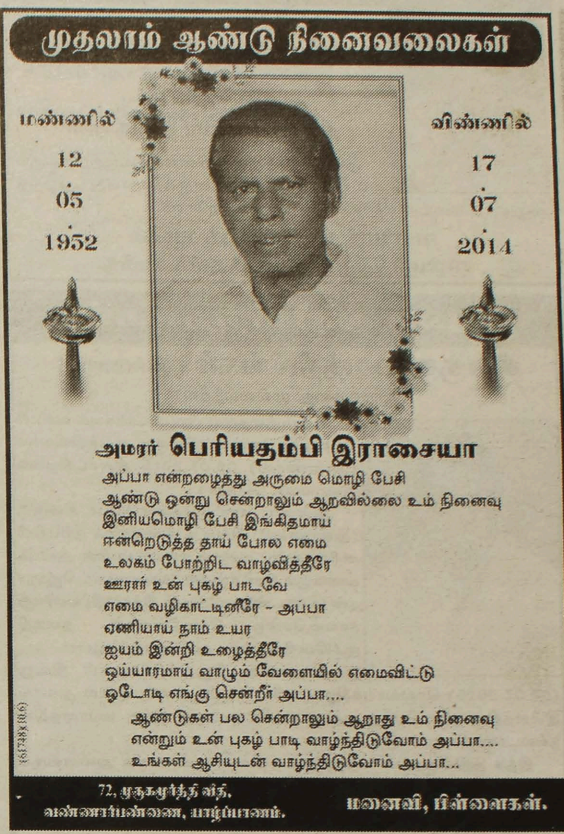 முதலாம் ஆண்டு நினைவலைகள்
மண்ணில்
12
05
1952
விண்ணில்
17
07
2014
அமரர் பெரியதம்பி இராசையா
அப்பா என்றழைத்து அருமை மொழி பேசி
ஆண்டு ஒன்று சென்றாலும் ஆறவில்லை உம் நினைவு
இனியமொழி பேசி இங்கிதமாய்
ஈன்றெடுத்த தாய் போல எமை
உலகம் போற்றிட வாழ்வித்தீரே
ஊரார் உன் புகழ் பாடவே
எமை வழிகாட்டினீரே - அப்பா
ஏணியாய் நாம் உயர
ஐயம் இன்றி உழைத்தீரே
ஒய்யாரமாய் வாழும் வேளையில் எமைவிட்டு
ஓடோடி எங்கு சென்றீர் அப்பா....
ஆண்டுகள் பல சென்றாலும் ஆறாது உம் நினைவு
என்றும் உன் புகழ் பாடி வாழ்ந்திடுவோம் அப்பா....
உங்கள் ஆசியுடன் வாழ்ந்திடுவோம் அப்பா...
(61748)(10.6)
72, முருகமூர்த்தி வீதி,
வண்ணார்பண்ணை, யாழ்ப்பாணம்.
மனைவி, பிள்ளைகள்.